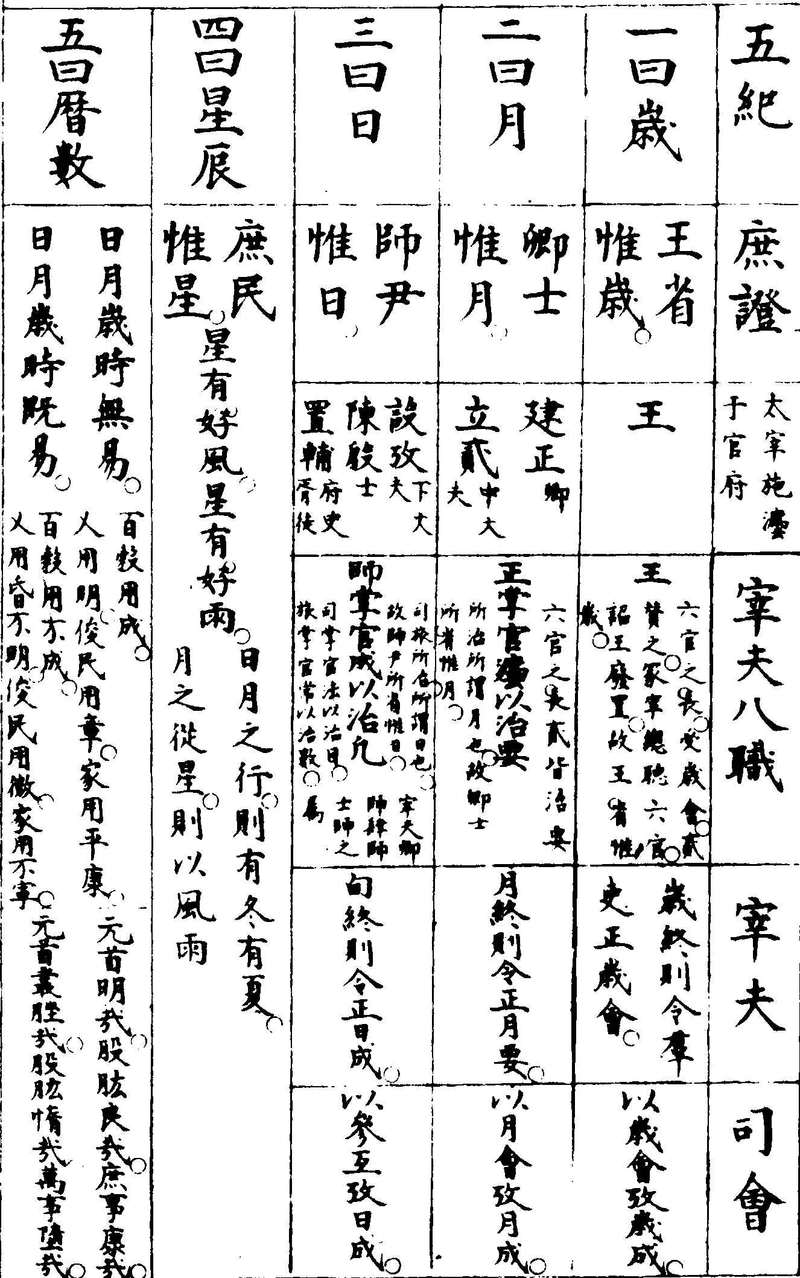 五紀
庶證
太宰施灋
于官府
宰夫八職
宰夫
司會
一曰歲
王省
惟歲
王
王
六官之長受歲會貳
贊之冢宰總聽六官
詔王廢置故王省惟
歲
歲終則令羣
吏正歲會
以歲會攷歲成
二曰月
卿士
惟月
建正卿
立貳中大
夫
正掌官灋以治要
六官之長貳皆治要
所治所謂月也故卿士
所省惟月
月終則令正月要
以月會攷月成
三曰日
師尹
惟日
設攷下大夫
陳殷士
置輔府史胥徒
師掌官成以治凡
司旅所治所謂日也
故師尹所省惟日
司掌官法以治目
旅掌官常以治數
宰夫鄉
師肆師
士師之
屬
旬終則令正日成
以參互攷日成
四曰星辰
庶民
惟星
星有好風星有好雨
日月之行則有冬有夏
月之從星則以風雨
五曰曆數
日月歲時無易
日月歲時既易
百穀用成
乂用明俊民用章家用平康
百穀用不成
乂用昏不明俊民用微家用不寧
元首明哉股肱良哉庶事康哉
元首叢脞哉股肱惰哉萬事墮哉